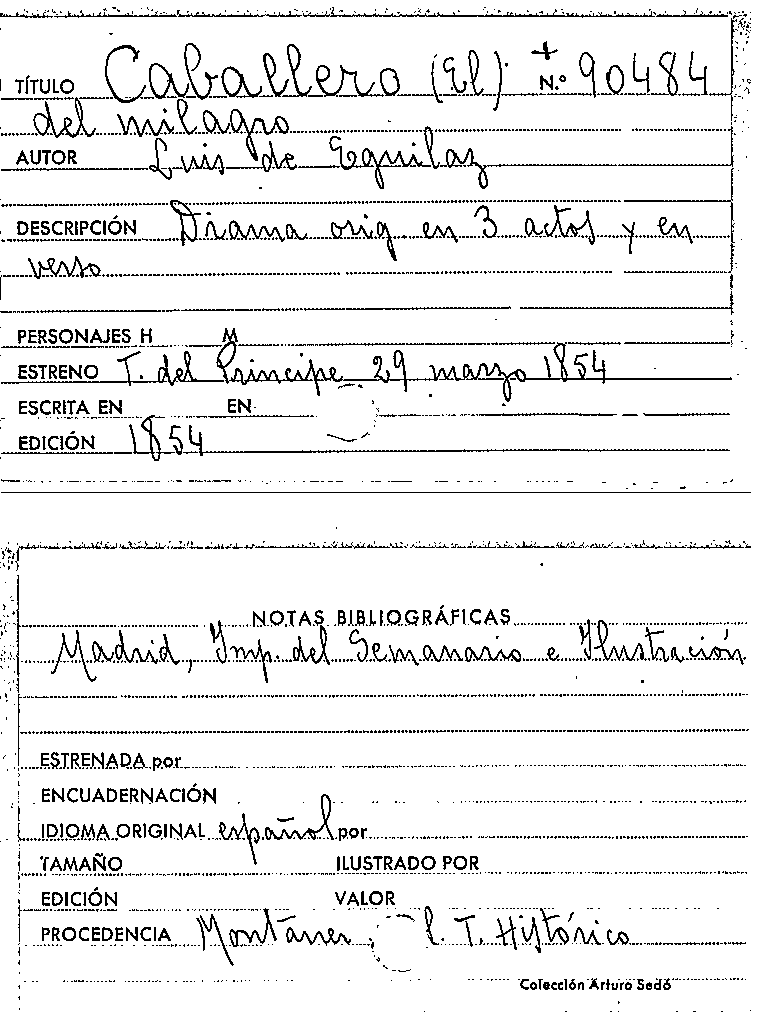 TÍTULO Caballero (El) + N.º 90484
del milagro
AUTOR Luis de Eguilaz
DESCRIPCIÓN Drama orig. en 3 actos y en
verso
PERSONAJES H M
ESTRENO T. del Principe 29 marzo 1854
ESCRITA EN EN
EDICIÓN 1854
NOTAS BIBLIOGRÁFICAS
Madrid, Imp. del Semanario e Ilustración
ESTRENADA por
ENCUADERNACIÓN
IDIOMA ORIGINAL español por
TAMAÑO ILUSTRADO POR
EDICIÓN VALOR
PROCEDENCIA Montaner, C. T. Histórico
Colección Arturo Sedó